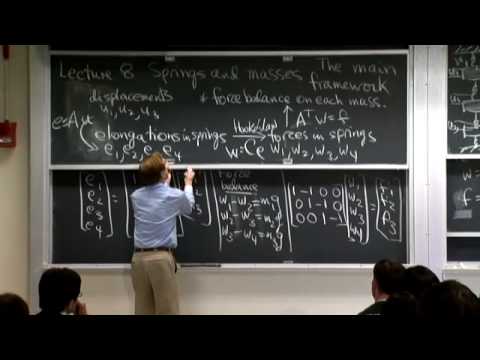 Lecture 8 Springs and masses The main
framework
displacements * force balance on each mass.
u1, u2, u3
e=Au ↑ Aᵀw=f
elongations in springs Hooke's law forces in springs
e1, e2, e3, e4 w=Ce w1, w2, w3, w4
e1
e2
e3
e4
Force
balance
w1-w2=m1g
w2-w3=m2g
w3-w4=m3g
1 -1 0 0
0 1 -1 0
0 0 1 -1
w1
w2
w3
w4
=
f1
f2
f3